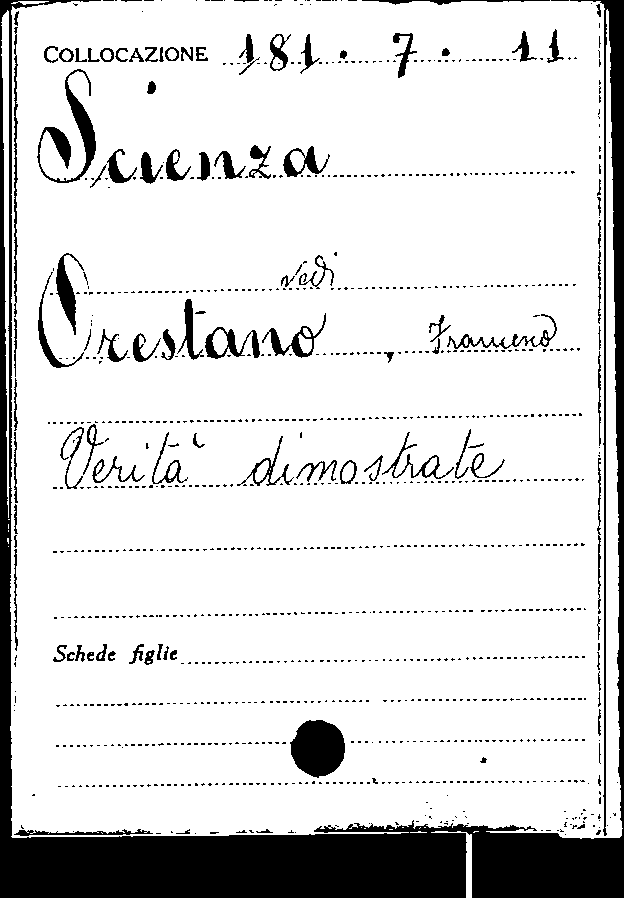 COLLOCAZIONE 181 . 7 . 11
Scienza
vedi
Orestano ,
Verità dimostrate
Schede figlie